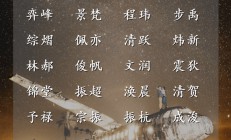 弈峰 景梵 程玮 步禹
综熠 佩亦 清跃 炜新
林郝 俊帆 文润 震狄
锦堂 振超 涣晨 清贺
予禄 宗振 振杭 成浚